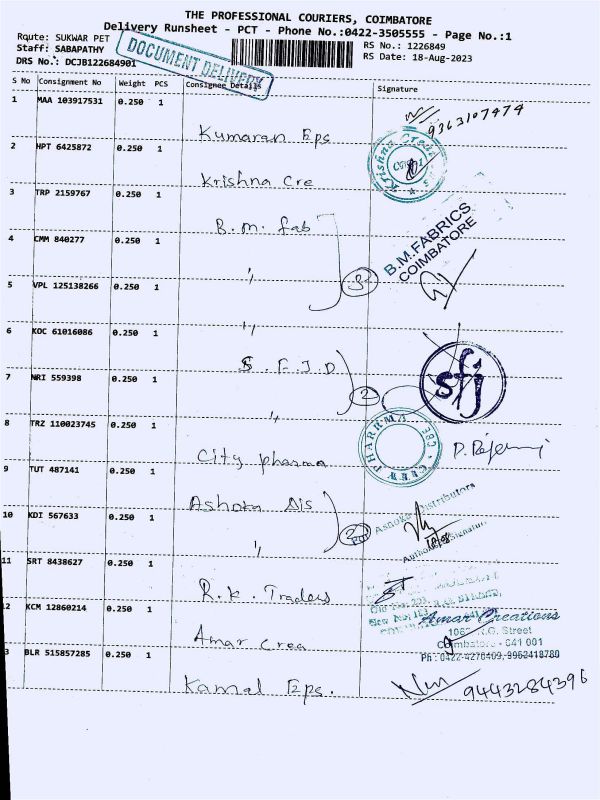 THE PROFESSIONAL COURIERS, COIMBATORE
Delivery Runsheet - PCT - Phone No.:0422-3505555 - Page No.:1
Rqute: SUKWAR PET
RS No.: 1226849
Staff: SABAPATHY
RS Date: 18-Aug-2023
DRS No.: DCJB122684901
DOCUMENT DELIVERY
S No Consignment No Weight PCS Consignee Details Signature
1 MAA 103917531 0.250 1 Kumaran Eps 9363107474
2 HPT 6425872 0.250 1 Krishna Cre
Krishna Crea
3 TRP 2159767 0.250 1 B.M. fab
B.M.FABRICS
COIMBATORE
4 CMM 840277 0.250 1 "
3
5 VPL 125138266 0.250 1 "
6 KOC 61016086 0.250 1 S.F.J.D
sfj
7 NRI 559398 0.250 1 "
2
8 TRZ 110023745 0.250 1 City pharma
CITY PHARRMA CBE
9 TUT 487141 0.250 1 Ashoka Dis
Ashoka Distributors
10 KDI 567633 0.250 1 "
2
Authorised Signatur
11 SRT 8438627 0.250 1 R.K. Traders
12 KCM 12860214 0.250 1 Amar Crea
Amar Creations
106 R.G. Street
Coimbatore - 641 001
Ph : 0422-4276409, 9952418780
3 BLR 515857285 0.250 1 Kamal Eps. 9443284396